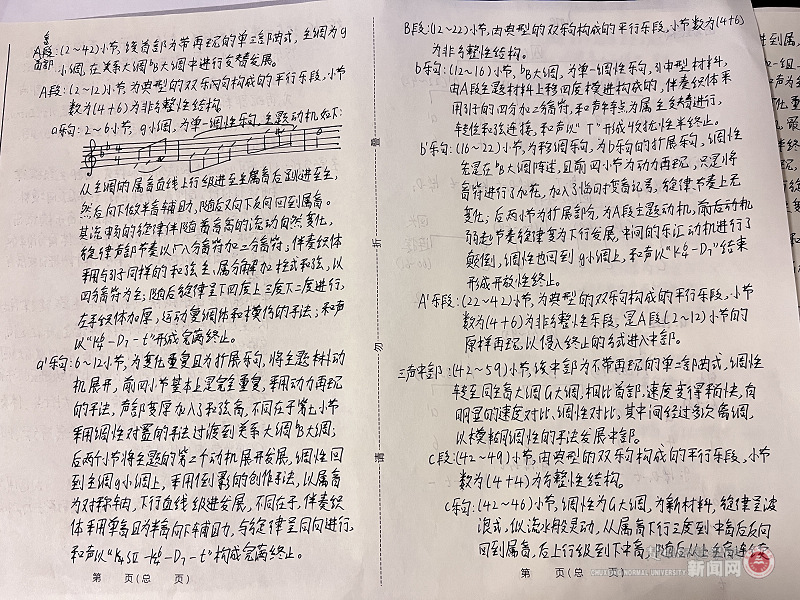 A段:(2~42)小节,该首部为带再现的单三部曲式,主调为g
首部
小调,在关系大调ᵇB大调中进行交替发展。
A段:(2~12)小节,为典型的双乐句构成的平行乐段,小节
数为(4+6)为非方整性结构
a乐句:2~6小节,g小调,为单一调性乐句,主题动机如下:
从主调的属音直线上行级进至主属音后跳进至主,
然后向下做半音辅助,随后反向下反向回到属音。
其流畅的旋律伴随着音高的流动自然变化,
旋律声部节奏以八分音符加二分音符;伴奏织体
采用与引子同样的和弦主、属分解加柱式和弦,以
四分音符为主;随后旋律呈下四度上三度下二度进行,
左手织体加厚,运动重调伴和模仿的手法;和声
以“K⁶₄-D₇-t”形成完满终止。
a'乐句:6~12小节,为变化重复且为扩展乐句,将主题材料动
机展开,前四小节基本上是完全重复,采用动力再现
的手法,声部变厚加入了和弦音,不同在于第七小节
采用调性对置的手法过渡到关系大调ᵇB大调;
后两个小节将主题的第二个动机展开发展,调性回
到主调g小调上,采用倒影的创作手法,以属音
为对称轴,下行直线级进发展,不同在于,伴奏织
体采用单音且为半音向下辅助,与旋律呈同向进行,
和声以“K⁶₄SⅡ-K⁶₄-D₇-t”构成完满终止。
第 页(总 页)
B段:(12~22)小节,由典型的双乐句构成的平行乐段,小节数为(4+6)
为非方整性结构。
b乐句:(12~16)小节,ᵇB大调,为单一调性乐句,引申型材料,
由A段主题材料上移四度模进构成的,伴奏织体采
用引子的四分加二分音符,和声特点为属主交替进行,
转位和弦连接,和声以“T”形成收拢性半终止。
b'乐句:(16~22)小节,为移调乐句,为b乐句的扩展乐句,调性
先是在ᵇB大调陈述,且前四小节为动力再现,只是将
音符进行了加花,加入了临时变音记号,旋律节奏上无
变化;后两小节为扩展部分,为A段主题动机,前后动机
弱起节奏旋律变为下行发展,中间的乐汇动机进行了
颠倒,调性也回到g小调上,和声以“K⁶₄-D₇”结束
形成开放性终止。
A'乐段:(22~42)小节,为典型的双乐句构成的平行乐段,小节
数为(4+6)为非方整性乐段,是A段(2~12)小节的
原样再现,以侵入终止的方式进入中部。
三声中部:(42~59)小节,该中部为不带再现的单二部曲式,调性
转至同主音大调G大调,相比首部,速度变得稍快,有
明显的速度对比、调性对比,其中间经过多次离调,
以模糊调性的手法发展中部。
C段:(42~49)小节,由典型的双乐句构成的平行乐段,小节
数为(4+4)为方整性结构。
c乐句:(42~46)小节,调性为G大调,为新材料,旋律呈波
浪式,似流水般灵动,从属音下行三度到中音后反向
回到属音,后上行级到下中音,随后从上主音
第 页(总 页)
CHUXIONG NORMAL UNIVERSITY
新闻网